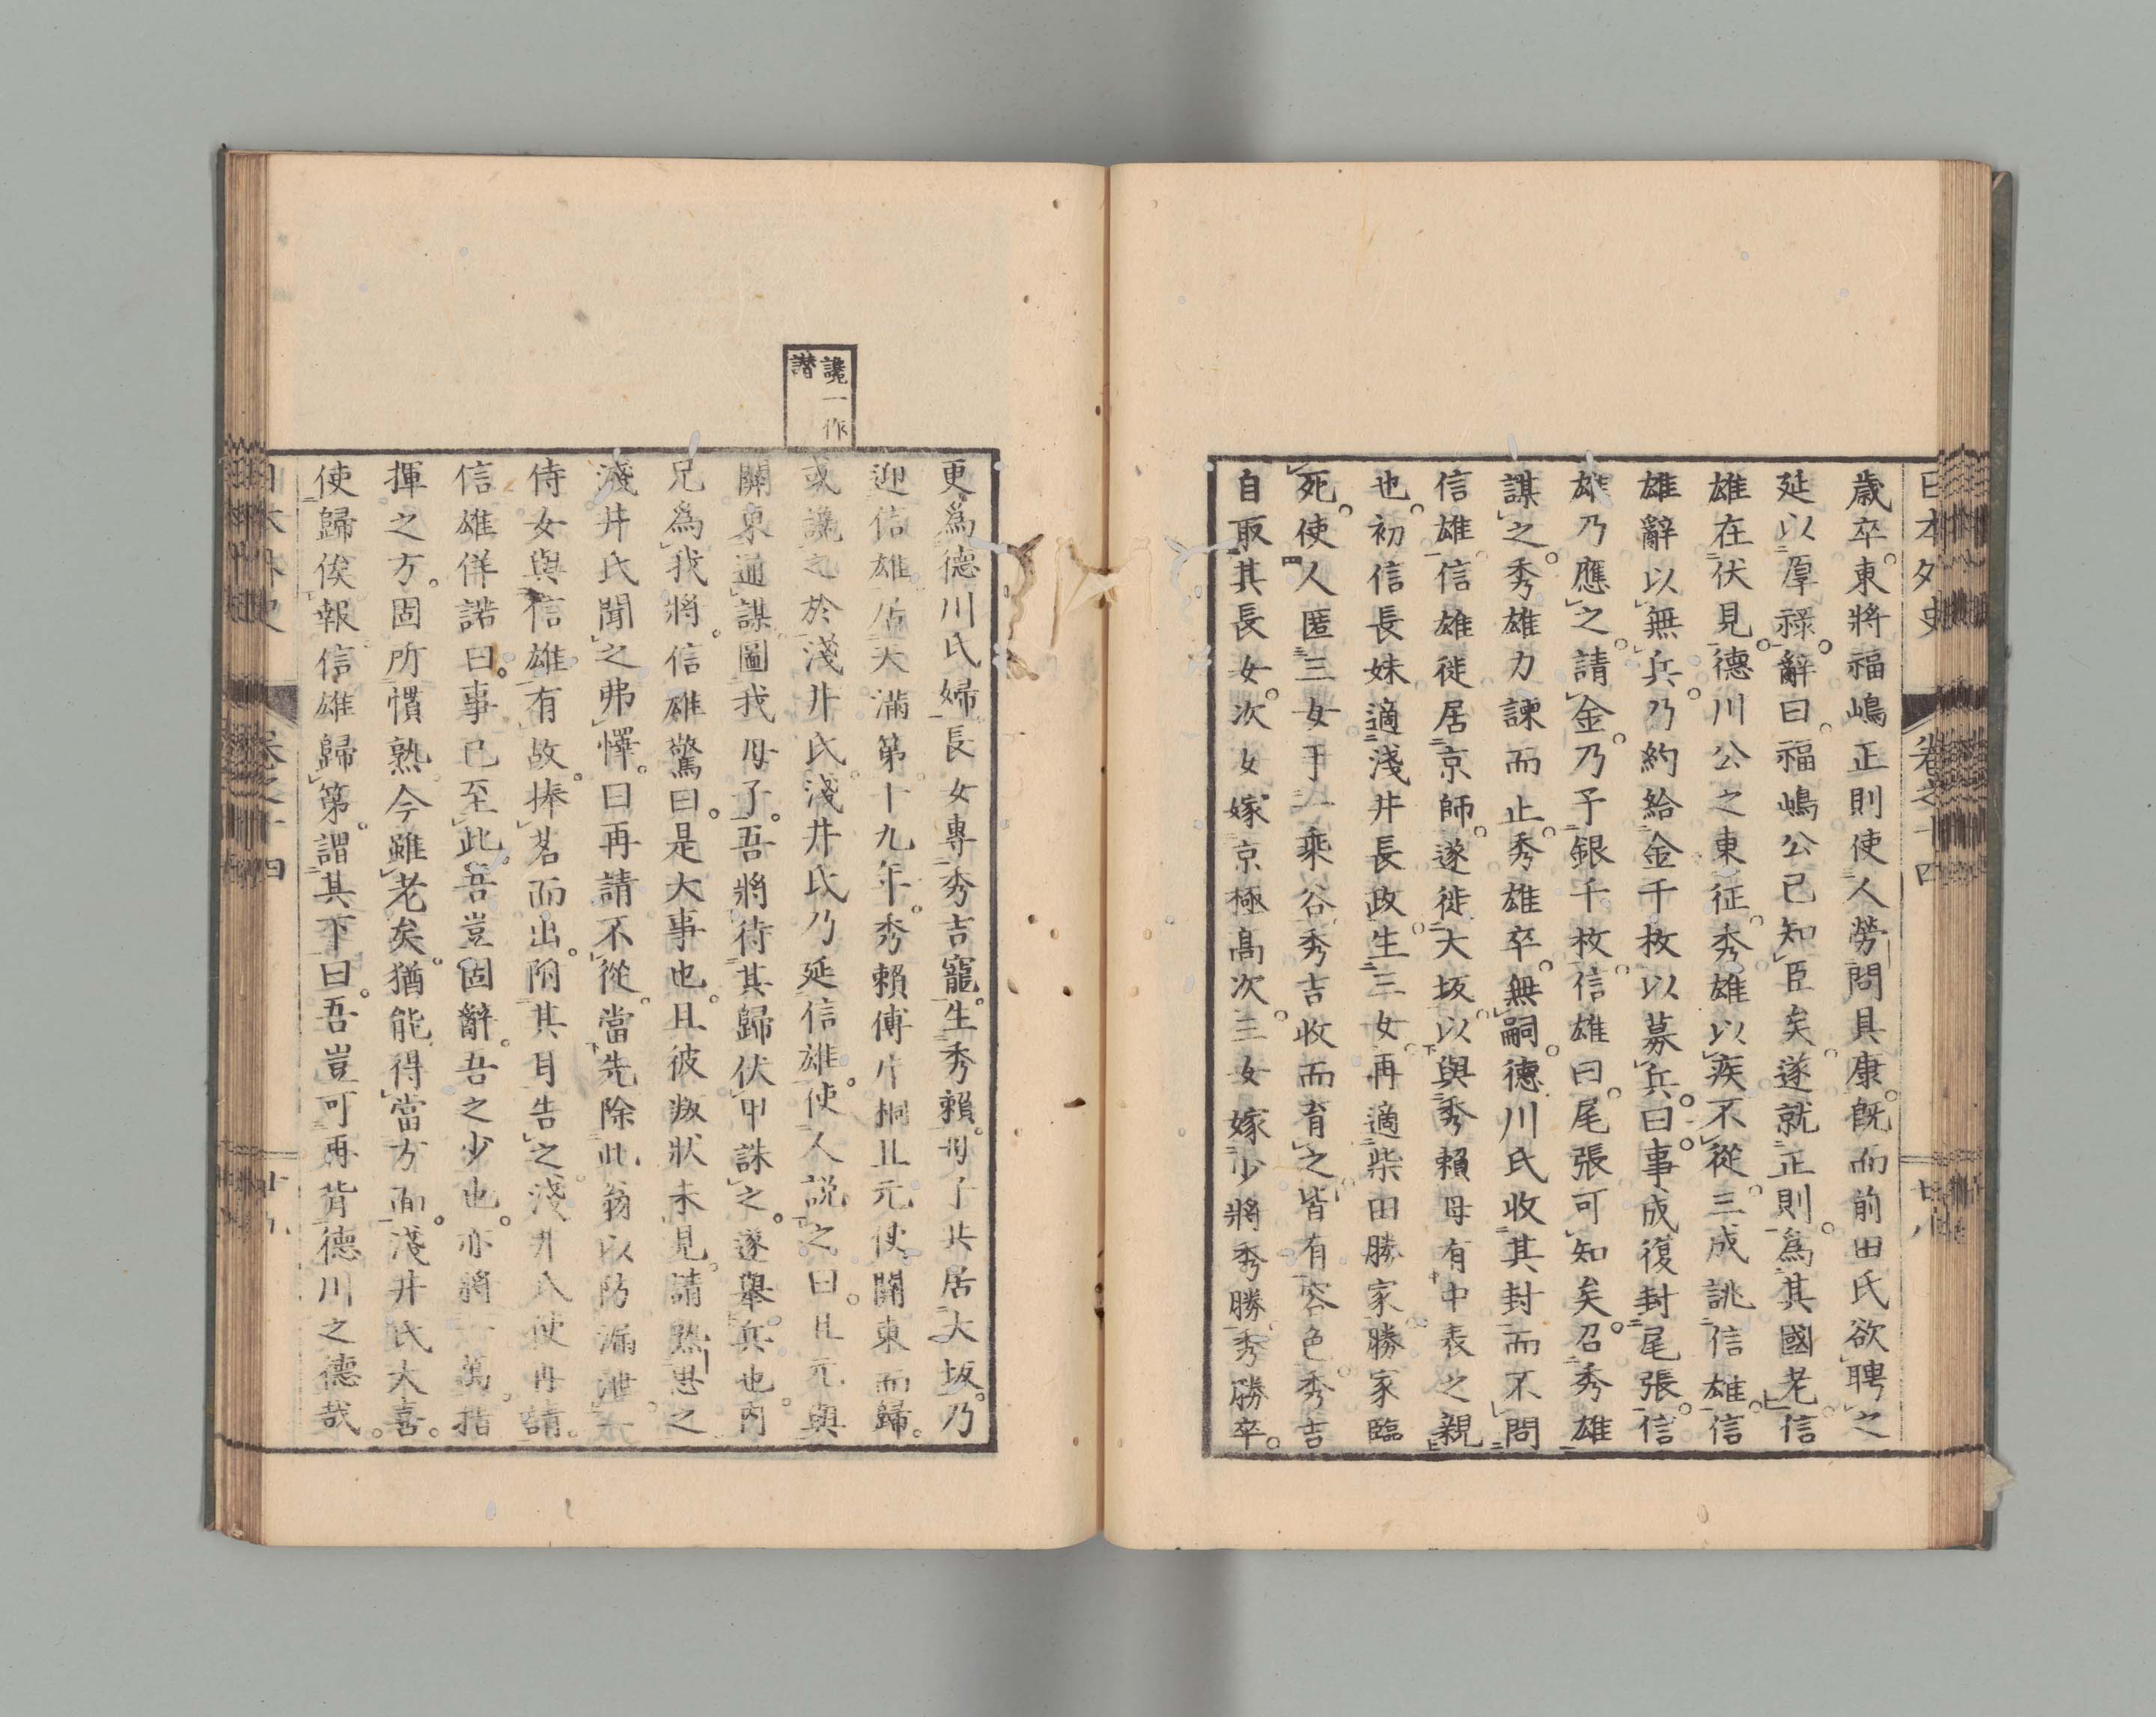 日本外史
卷之十四
歳卒。東將福嶋正則使人勞問具康。既而前田氏欲聘之
延以厚祿。辭曰。福嶋公已知臣矣。遂就正則。爲其國老。信
雄在伏見。德川公之東征。秀雄以疾不從。三成誂信雄。信
雄辭以無兵。乃約給金千枚以募兵。曰。事成復封尾張。信
雄乃應之。請金。乃予銀千枚。信雄曰。尾張可知矣。召秀雄
謀之。秀雄力諫而止。秀雄卒。無嗣。德川氏收其封而不問
信雄。信雄徙居京師。遂徙大坂。以與秀賴母有中表之親
也。初信長妹適淺井長政。生三女。再適柴田勝家。勝家臨
死。使人匿三女于一乘谷。秀吉收而育之。皆有容色。秀吉
自取其長女。次女嫁京極高次。三女嫁少將秀勝。秀勝卒。
更爲德川氏婦。長女專秀吉寵。生秀賴。母子共居大坂。乃
迎信雄居天滿第。十九年。秀賴傅片桐且元使關東而歸。
讒一作
譖
或讒之於淺井氏。淺井氏乃延信雄。使人説之曰。且元與
關東通謀圖我母子。吾將待其歸伏甲誅之。遂擧兵也。內
兄爲我將。信雄驚曰。是大事也。且彼叛狀未見。請熟思之
淺井氏聞之弗懌。曰再請不從。當先除此翁以防漏泄。
侍女與信雄有故。捧茗而出。附其耳告之。淺井氏使再請。
信雄佯諾曰。事已至此。吾豈固辭。吾之少也。亦將一萬。指
揮之方。固所慣熟。今雖老矣。猶能得當方面。淺井氏大喜。
使歸俟報。信雄歸第。謂其下曰。吾豈可再背德川之德哉。
日本外史
卷之十四
十九